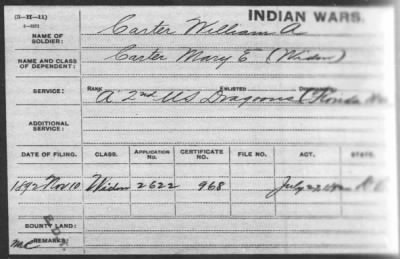 (3-II-11)
INDIAN WARS.
NAME OF SOLDIER: Carter William A
NAME AND CLASS OF DEPENDENT: Carter Mary E (Widow)
SERVICE: RANK ENLISTED
A 2nd US Dragoons (Florida War
ADDITIONAL SERVICE:
DATE OF FILING. CLASS. APPLICATION No. CERTIFICATE No. FILE NO. ACT. STATE.
1892 Nov 10 Widow 2622 968 July 27
BOUNTY LAND:
REMARKS: